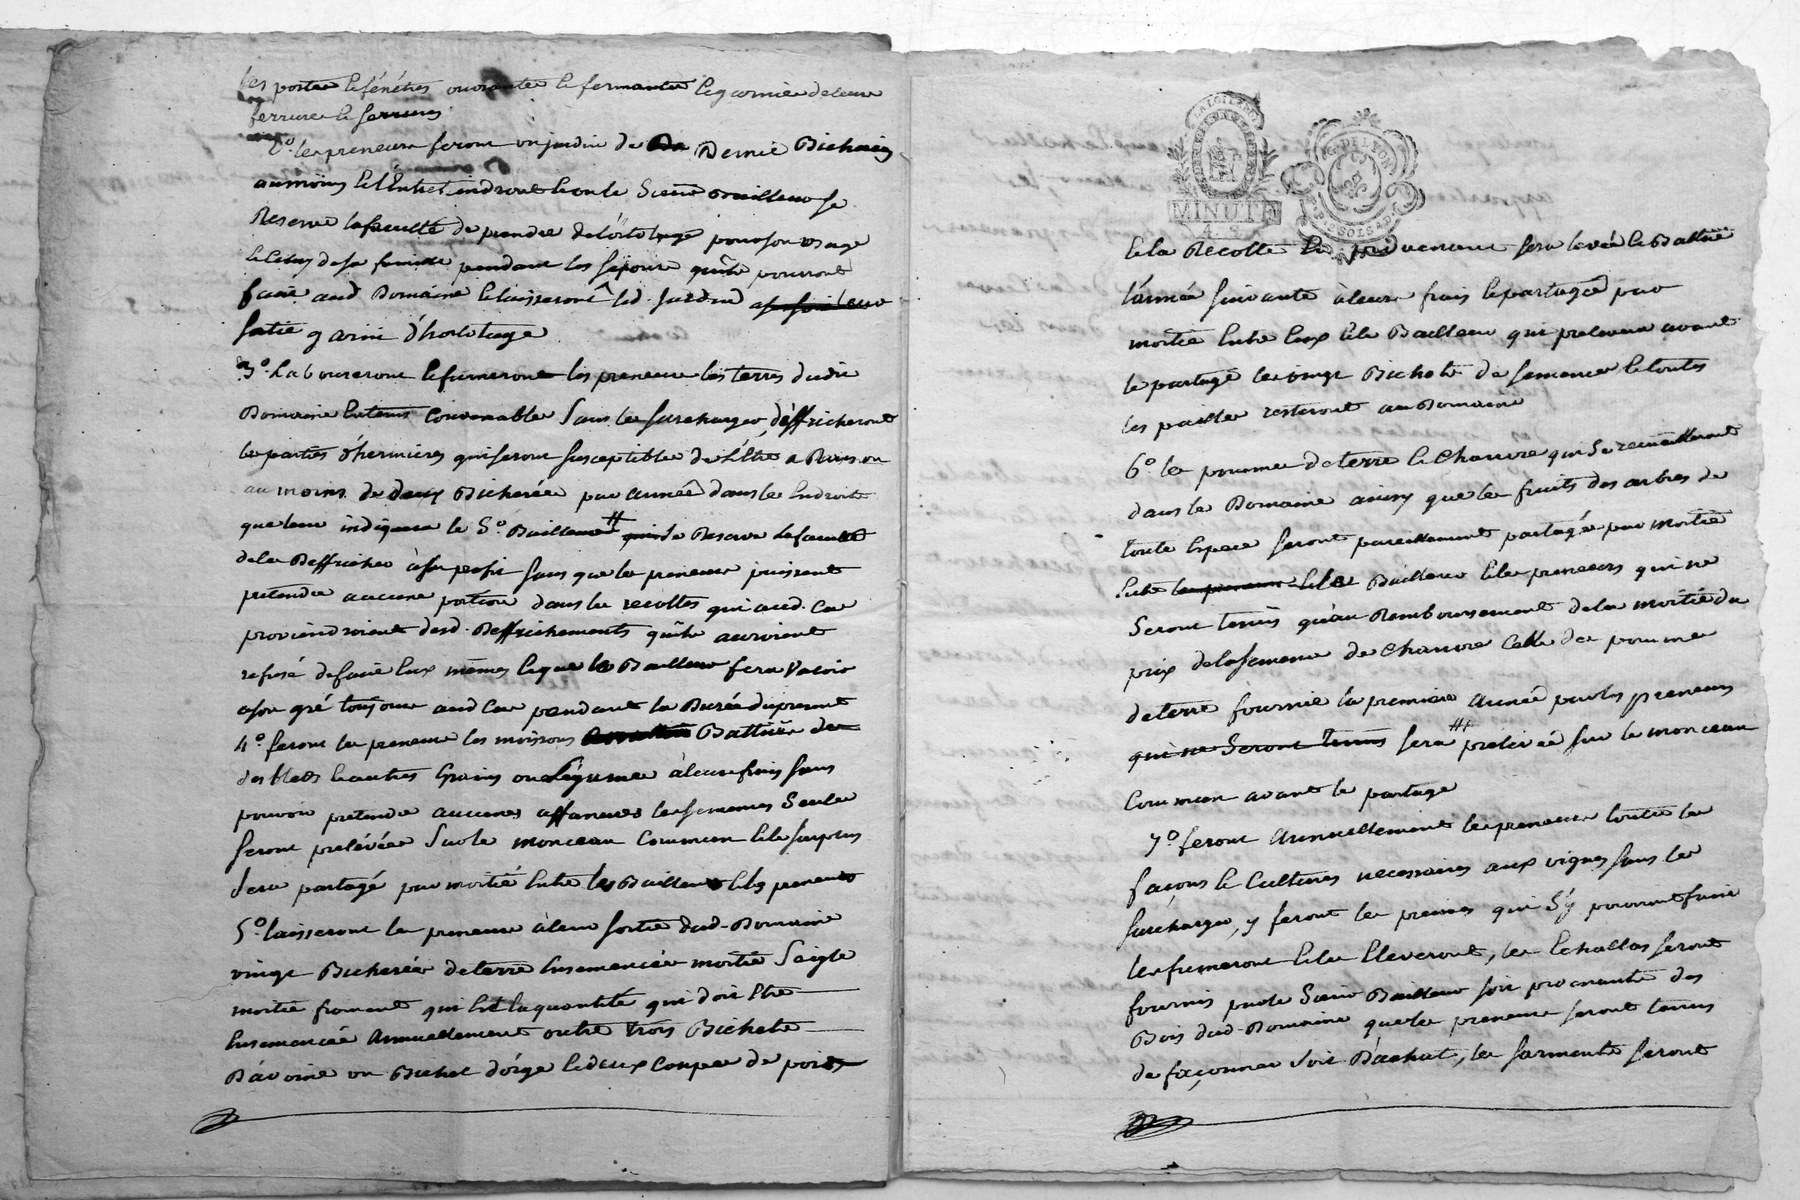 les portes & fénétres ouvrantes & fermantes & garnies de leurs
ferrures & serrures
2.º les preneurs feront un jardin de Demie Bicherée
au moins & l'Entretiendront & on le Sieur Bailleur se
Reserve la faculté de prendre de l'ortolage pour son usage
& celuy de sa famille pendant les sejours qu'ils pourront
faire aud. Domaine & laisseront led. Jardin a leur
sortie garni d'hortolage
3.º Laboureront & fumeront les preneurs les terres dudit
Domaine En tems Convenable Sans les Surcharger, défricheront
les parties d'hermières qui seront susceptibles de l'Etre a Raison
au moins de deux Bicherées par année dans les Endroits
que leur indiquera le S.r Bailleur # qui se Reserve la faculté
de les Deffricher à son profit sans que les preneurs puissent
pretendre aucune portion dans les recoltes qui aud. Cas
proviendroient desd. Deffrichements qu'ils auroient
refusé de faire Eux mêmes & que le Bailleur fera Valoir
a son gré toujours aud. Cas pendant la Durée du present
4.º feront les preneurs les moissons Battures de
des bleds & autres Grains ou Légumes à leurs frais sans
pouvoir pretendre aucunes affanures les semences Seules
seront prélévées Sur le monceau Commun & le surplus
sera partagé par moitié Entre les Bailleurs & les preneurs
5.º laisseront les preneurs à leur sortie dud. Domaine
vingt Bicherées de terre Ensemencées moitié Saigle
moitié froment qui Est la quantité qui doit Etre
Ensemencée Annuellement outre trois Bichets
D'avoine un Bichet d'orge & deux Coupes de pois
LA LOI LE ROI
MINUTE
4. S.
G. DE LYON
& la Recolte En provenant sera levée & Battue
l'année suivante à leurs frais & partagée par
moitié Entre Eux & le Bailleur qui prelevera avant
le partage les vingt Bichets de semence & toutes
les pailles resteront au Domaine
6º les pommes de terre & Chanvre qui Se recueilleront
dans le Domaine ainsy que les fruits des arbres de
toute Espece seront pareillement partagés par moitié
Entre les preneurs & le Bailleur & les preneurs qui ne
Seront tenus qu'au Remboursement de la moitié du
prix de la semence de Chanvre Celle des pommes
de terre fournie la premiere Année par les preneurs
qui ne Seront tenus sera # prelevée sur le monceau
Commun avant le partage
7º feront Annuellement les preneurs toutes les
façons & Cultures necessaires aux vignes sans les
surcharger, y feront les preines qui S'y pourront faire
les fumeront & les Eleveront, les Echallas seront
fournis par le Sieur Bailleur soit provenants des
Bois dud. Domaine que les preneurs seront tenus
de façonner soit D'achat, les sarments seront